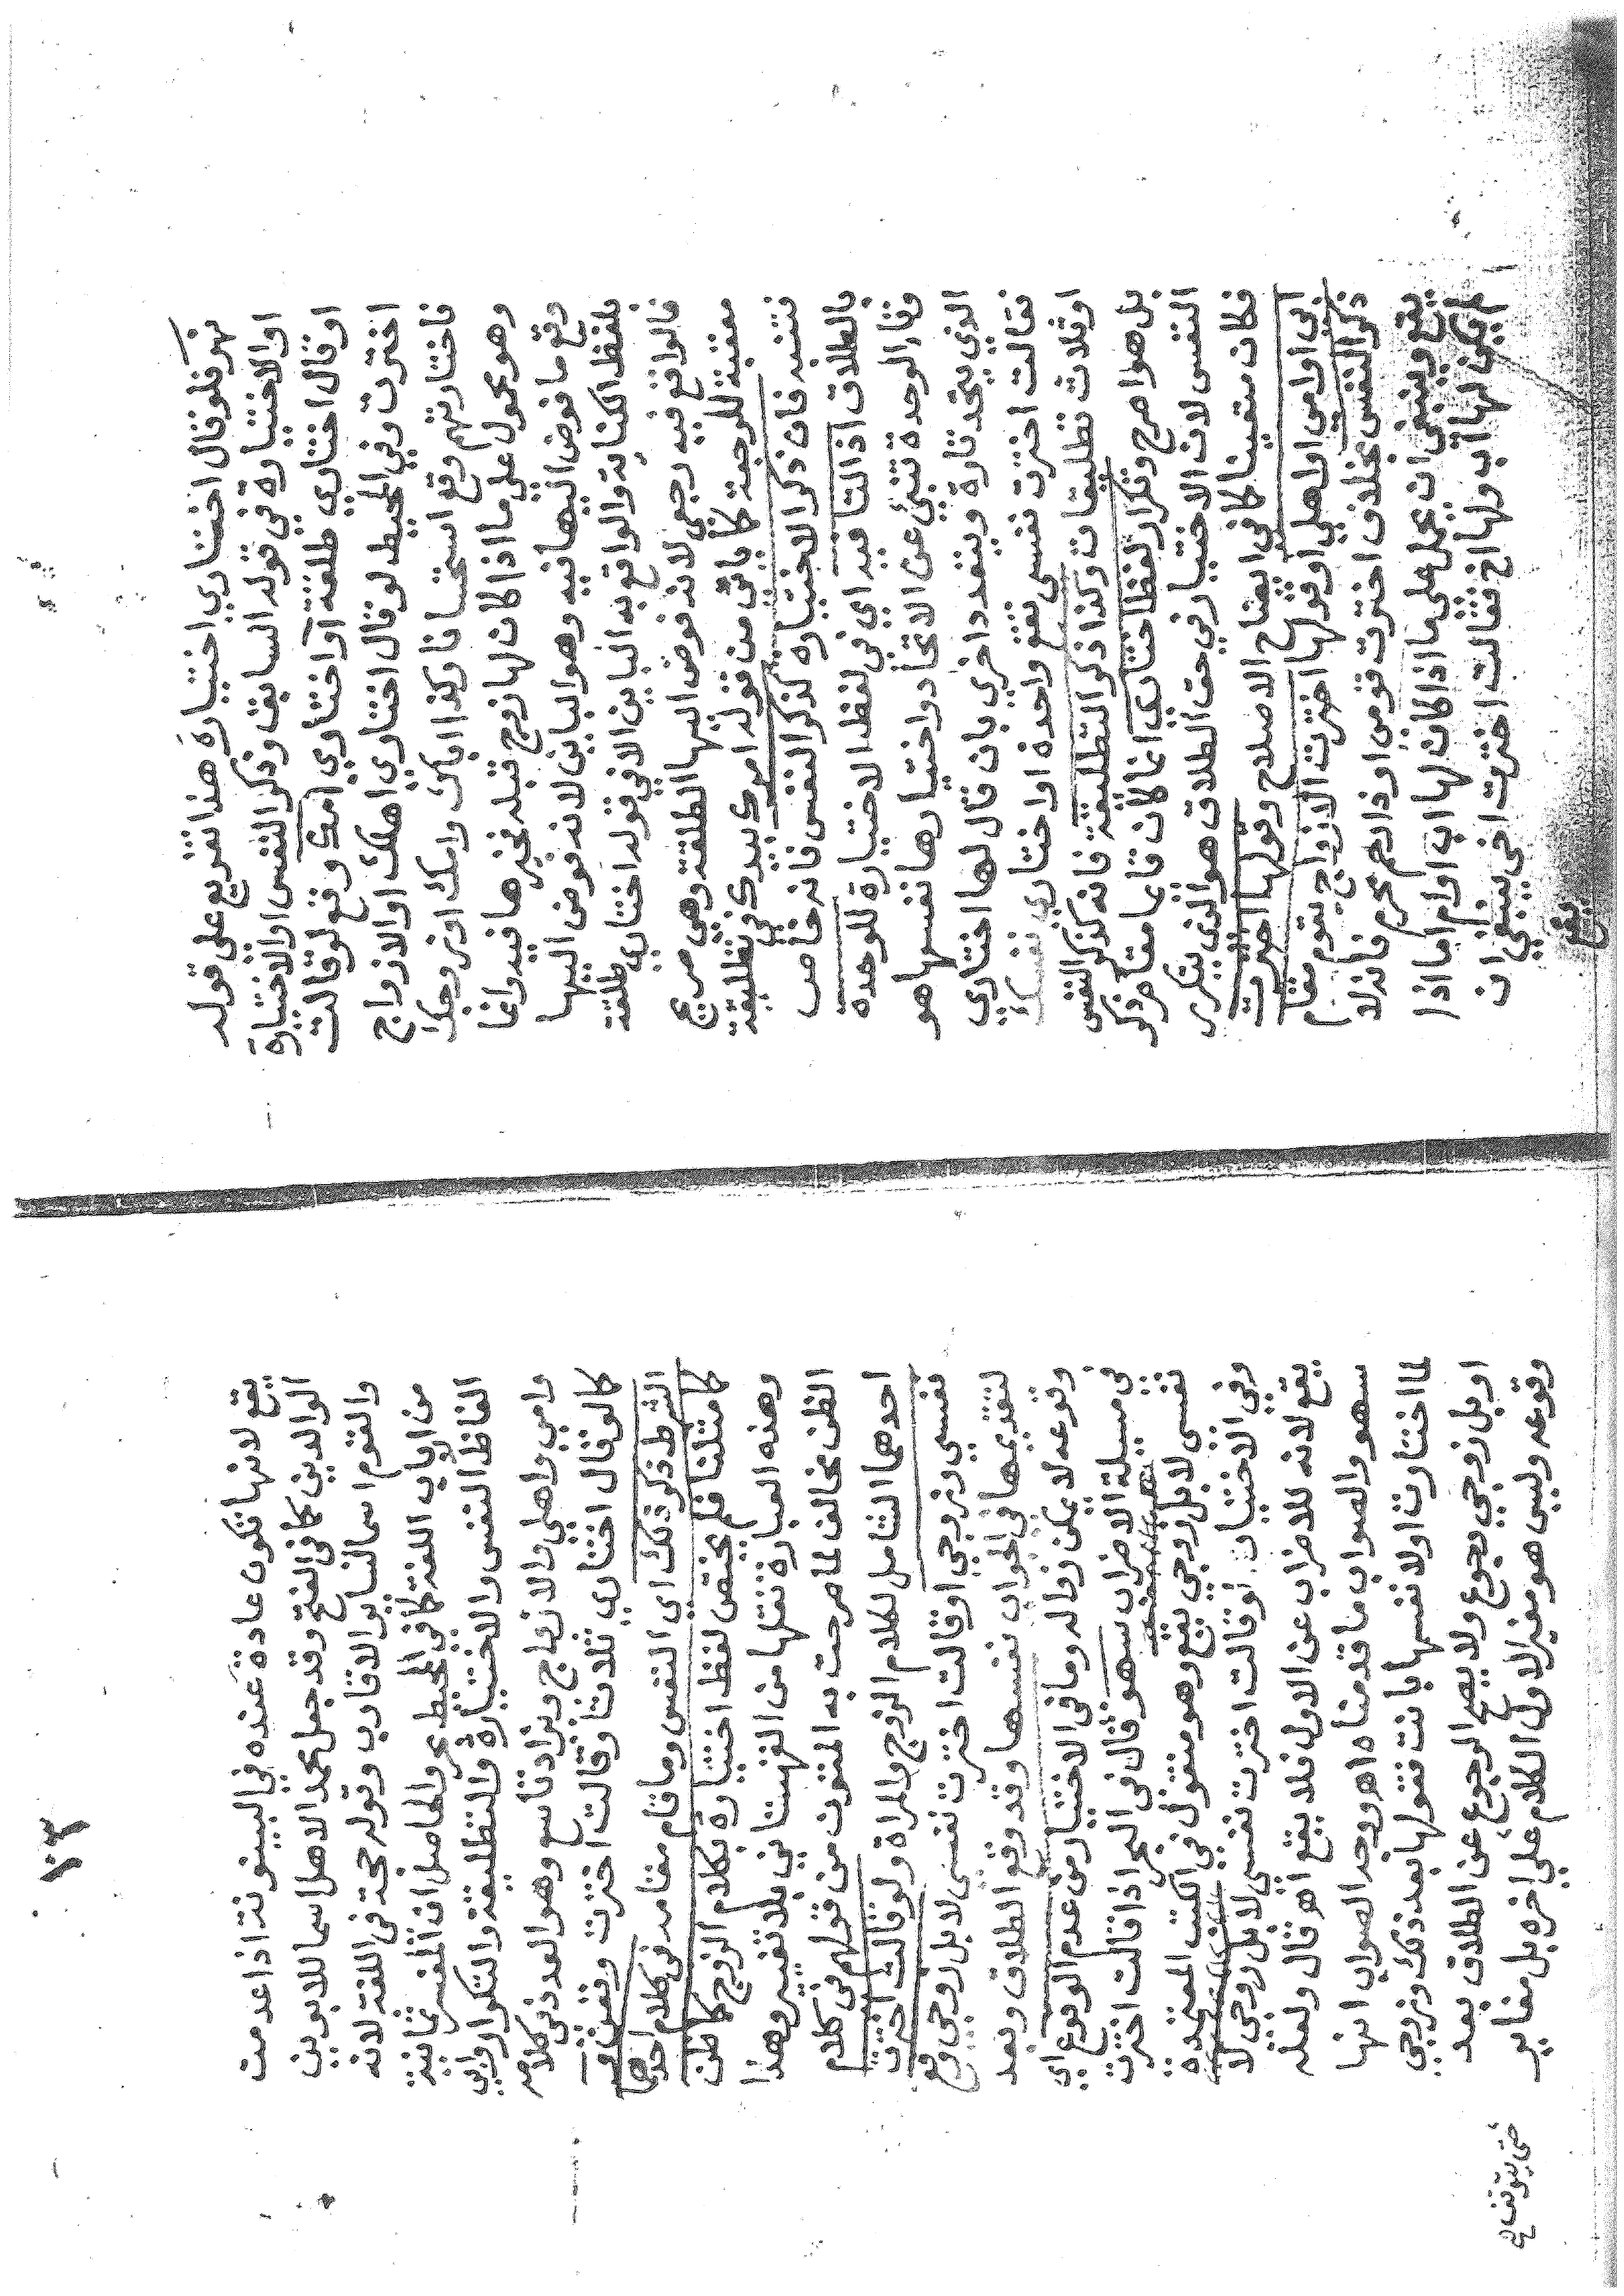 نهر فلو قال اختاري اختيارة هذا تفريع على قوله
او الاختيارة في قوله السابق وذكر النفس او الاختيارة
او قال اختاري طلقة او اختاري امك وقع لو قالت
اخترت وفي المحيط لو قال اختاري اهلك او الازواج
فاختارتهم وقع استحسانا وكذا اباك وامك او زوجك
وهو محمول على ما اذا كان لها زوج قبله نحيزها فيه وانما
وقع ما فوض اليها فيه وهو الباين لانه فوض اليها
بلفظ الكناية والواقع به الباين الا في قوله اختاري طلقة
فالواقع فيه رجعي لانه فوض اليها الطلقة وهي صريح
معقبة للرجعة كما ياتي من قوله امرك بيدك في تطليقة
تتمة فان ذكر الاختيارة كذكر النفس فانه خاص
بالطلاق اذ التا فيه اي في لفظ الاختيارة للوحدة
وقا الوحدة تنبئ عن الاتحاد واختيارها نفسها هو
الذي يتحد تارة ويتعدد اخرى بان قال لها اختاري
فقالت اخترت نفسي تقع واحدة او اختاري نفسك
او ثلاث تطليقات وكذا ذكر التطليقة فانه كذكر النفس
بل هو اصرح وتكرار لفظ اختاري انما كان قايما مقام ذكر
النفس لان الاختيار في حق الطلاق هو الذي يتكرر
فكان متعينا كما في ايضاح الاصلاح وقولها اخترت
ابي او امي او اهلي او قولها اخترت الازواج يقوم مقام
ذكر النفس بخلاف اخترت قومي او ذا رحم محرم فانه لا
يقع وينبغي ان يحمل على ما اذا كان لها اب او ام اما اذا
لم يكن لها اب ولها اخ فقالت اخترت اخي ينبغي ان
يقع
١٠٣
يقع لانها تكون عادة عنده في البينونة اذا عدمت
الوالدين كما في الفتح وقد جعل محمد الاهل اسما للابوين
والقوم اسما لساير الاقارب وقوله حجة في اللغة لانه
من ارباب اللغة كما في المحيط بحر والحاصل ان المفسر ثمانية
الفاظ النفس والاختيارة والتطليقة والتكرار وابي
وامي واهلي والازواج ويزاد تاسع وهو العدد في كلامه
كما لو قال اختاري ثلاثا وقالت اخترت
الشرط ذكر ذلك اي النفس وما قام مقامه في كلام احدهما
كما مثلنا فلم يختص لفظ اختيارة بكلام الزوج كما ظن
وهذه العبارة نقلها من القهستاني بلا تغيير وهذا
الظن مخالف لما صرحت به المتون من قولهم في كلام
احدهما الشامل لكلام الزوج والمراة ولو قالت اخترت
نفسي وزوجي او قالت اخترت نفسي لا بل زوجي وقع
لتقديمها في الجواب نفسها وقد وقع الطلاق وبعد
وقوعه لا يمكن زواله وما في الاختيار من عدم الوقوع اي
في مسيلة الاضراب سهو قال في البحر اذا قالت اخترت
نفسي لا بل زوجي يقع وهو منقول في الكتب المعتمدة
وفي الاختيار لو قالت اخترت نفسي لا بل زوجي لا
يقع لانه للاضراب عن الاول فلا يقع اهو قال ولعله
سهو والصواب ما قدمناه اهو وجه الصواب انها
لما اختارت اولا نفسها بانت فقولها بعد ذلك وزوجي
او بل زوجي رجوع ولا يصح الرجوع عن الطلاق بعد
وقوعه وليس هو مغير لاول الكلام على اخره بل مغاير
حتى يتوقف